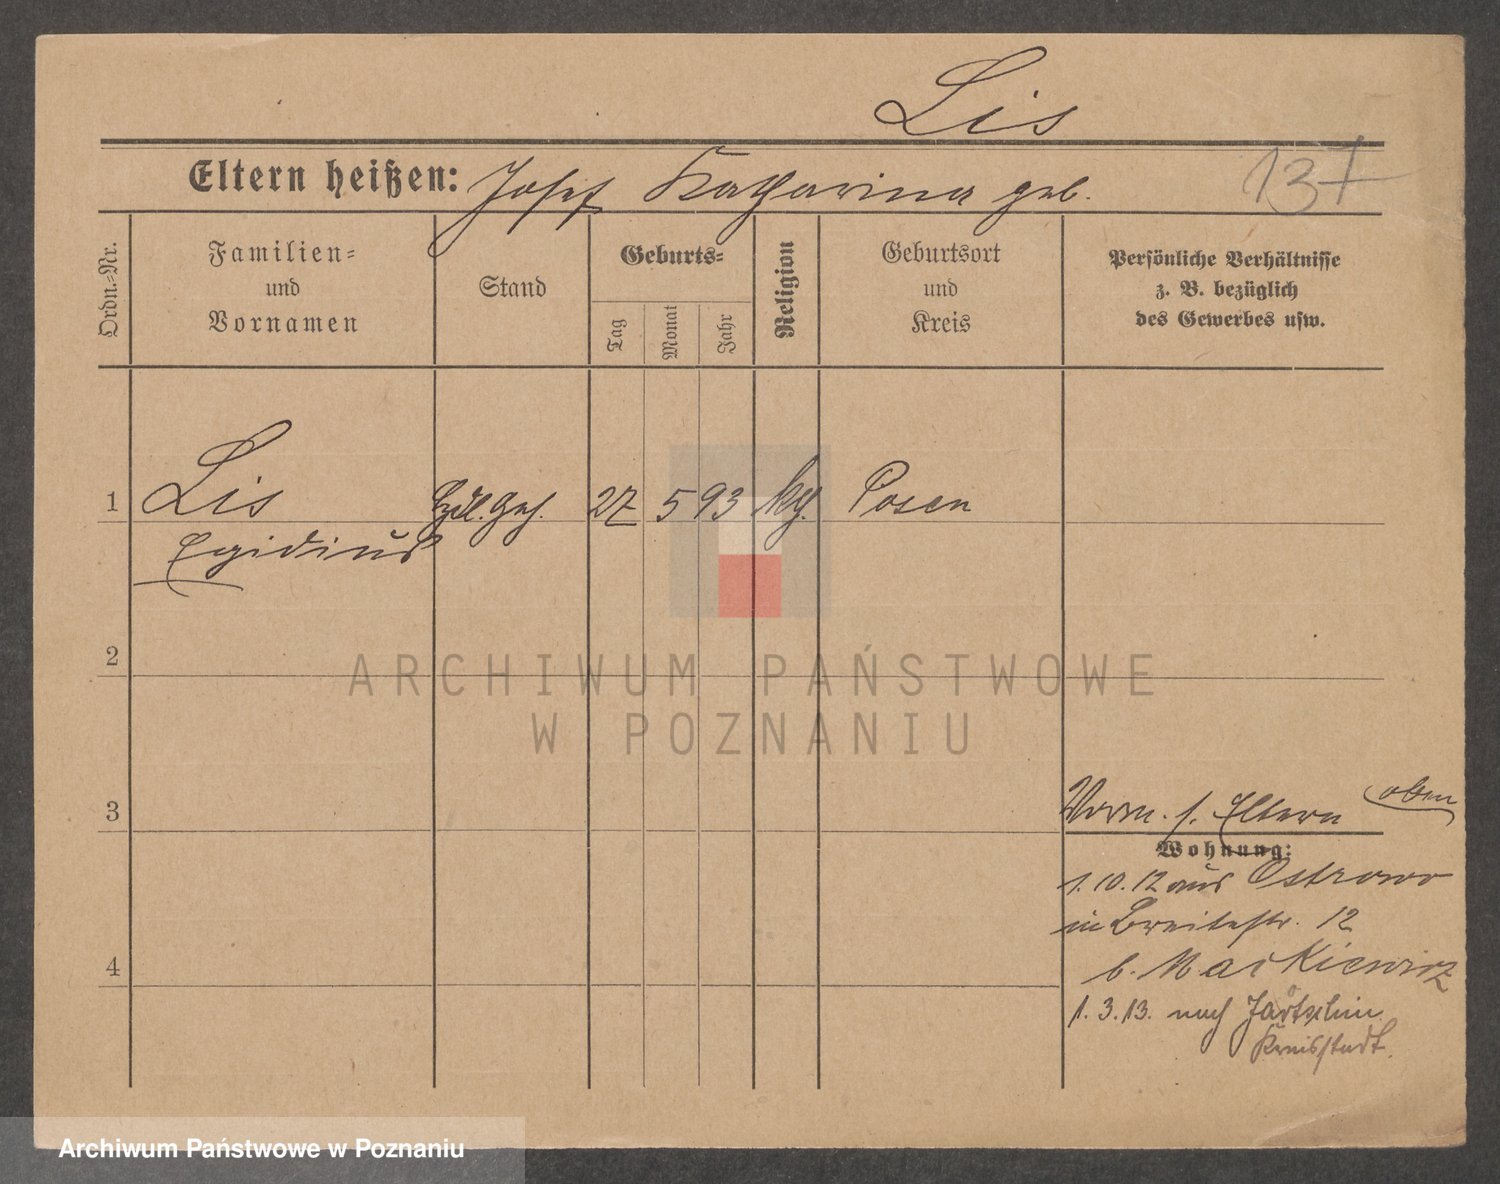 Lis
Eltern heißen: Josef Katharina geb.
137
Ordn.-Nr.
Familien=
und
Vornamen
Stand
Geburts=
Tag
Monat
Jahr
Religion
Geburtsort
und
Kreis
Persönliche Verhältnisse
z. B. bezüglich
des Gewerbes usw.
1 Lis Hdl. Geh. 27 5 93 kg. Posen
Egidius
2
3
4
Vorm. s. Eltern oben
Wohnung:
1.10.12 aus Ostrowo
in Breitestr. 12
b. Mackiewicz
1.3.13. nach
Kreisstadt.
ARCHIWUM PAŃSTWOWE
W POZNANIU
Archiwum Państwowe w Poznaniu